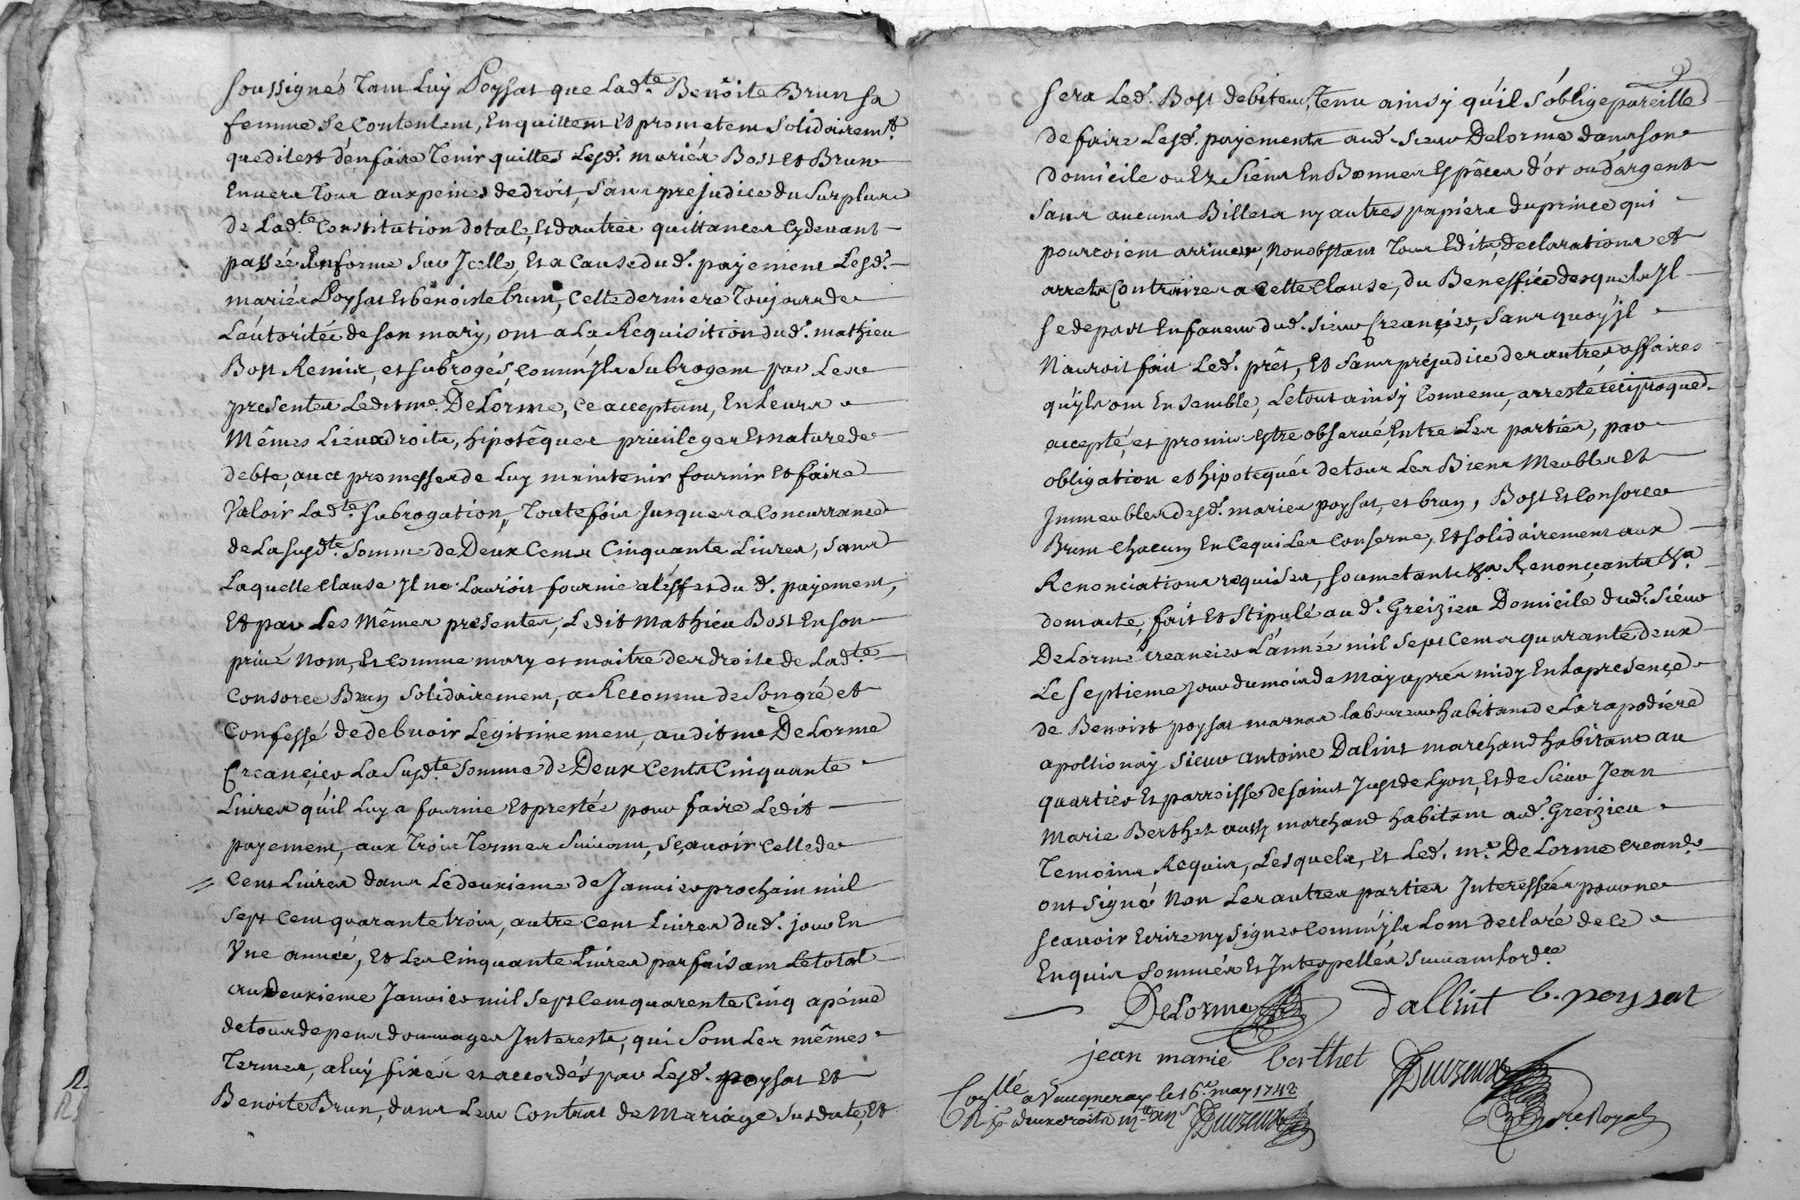 soussignés Tant Luy Poysat que Lad.te Benoite Brun sa
femme se Contentent, En quittent et prometent solidairem.t
que dit est d'en faire Tenir quittes Lesd.s mariés Bost et Brun
Envers tous aux peines de droit, sans prejudice du surplus
de Lad.te Constitution dotale, Et d'autres quittances Cy devant
passée En forme sur Icelle, Et a Cause dud. payement Lesd.s
mariés Poysat Et benoiste brun, Cette derniere Toujours de
L'autorité de son mary, ont a La Requisition dud. mathieu
Bost Remis, et subrogés, comm'ils subrogent par Les
presentes Ledit me. DeLorme, Ce acceptant, En Leurs
Mêmes Lieux droits, hipotêques privileges Et nature de
debte, avec promesses de Luy maintenir fournir Et faire
Valoir Lad.te subrogation, Toutefois Jusques a Concurrance
de La susd.te somme de Deux Cents Cinquante Livres, sans
Laquelle Clause Il ne L'auroit fournie a L'effet du d. payement,
Et par Les Mêmes presentes, Ledit Mathieu Bost En son
privé nom, Et Comme mary et maitre des droits de Lad.te
Consorce Brun solidairement, a Reconnu de son gré, et
Confessé de debvoir Legitimement, audit me DeLorme
Creancier La susd.te somme de Deux Cents Cinquante
Livres qu'il Luy a fournie Et prestée pour faire Ledit
payement, aux trois Termes suivant, sçavoir Celle de
Cent Livres dans Le deuxieme de Janvier prochain mil
sept Cent quarante trois, autre Cent Livres dud. jour En
Une année, Et Les Cinquante Livres parfaisant Le total
au deuxieme Janvier mil sept Cent quarente Cinq a peine
de tous depens dommages Interests, qui sont Les mêmes
Termes, a luy fixés et accordés par Lesd. poysat Et
Benoite Brun, dans Leur Contrat de Mariage susdaté, Et
sera Led. Bost debiteur, tenu ainsy qu'il s'oblige pareille
de faire Lesd. payements aud. sieur Delorme dans son
domicile ou Ez siens En Bonnes Espêces d'or ou d'argent
sans aucuns Billets ny autres papiers du prince qui
pourroient arriver, Nonobstant Tous Edits, declarations et
arrets Contraires a Cette Clause, du Beneffice desquels Il
se depart En faveur dud. sieur Creançier, sans quoy Il
N'auroit fait Led. prêt, Et sans préjudice des autres affaires
qu'ils ont Ensemble, Le tout ainsy Convenu, arresté reciproqued.
accepté, et promis Estre observé Entre Les parties, par
obligation et hipotequés de tous Les Biens Meubles Et
Immeubles desd. maries poysat, et brun, Bost Et Consorce
Brun Chacun En Ce qui Les Conserne, Et solidairement aux
Renonciations requises, soumetants &a Renonçants &a
dont acte, fait Et stipulé aud. Greizieu Domicile dud. sieur
DeLorme Creancier L'année mil sept Cents quarante deux
Le septieme jour du mois de May aprés midy En La presençe
de Benoist poysat marnas laboureur habitant de La rapodiere
apollionay sieur antoine Dalint marchand habitant au
quartier Et parroisse de saint Just de Lyon, Et de sieur Jean
Marie Berthet aussy marchand habitant aud. Greizieu
Temoins Requis, Lesquels, Et Led. me. DeLorme Crean.r
ont signé Non Les autres parties Interessées pour ne
sçavoir Ecrire ny signer Comm'ils L'ont declaré de Ce
Enquis sommés Et Interpellés suivant l'ord.ce
DeLorme dallint b. poysat
jean marie berthet
Con.llé a Vaugneray le 16e. may 1742
R. deux droits Duvzeux
Duvzeux
No.re Royal